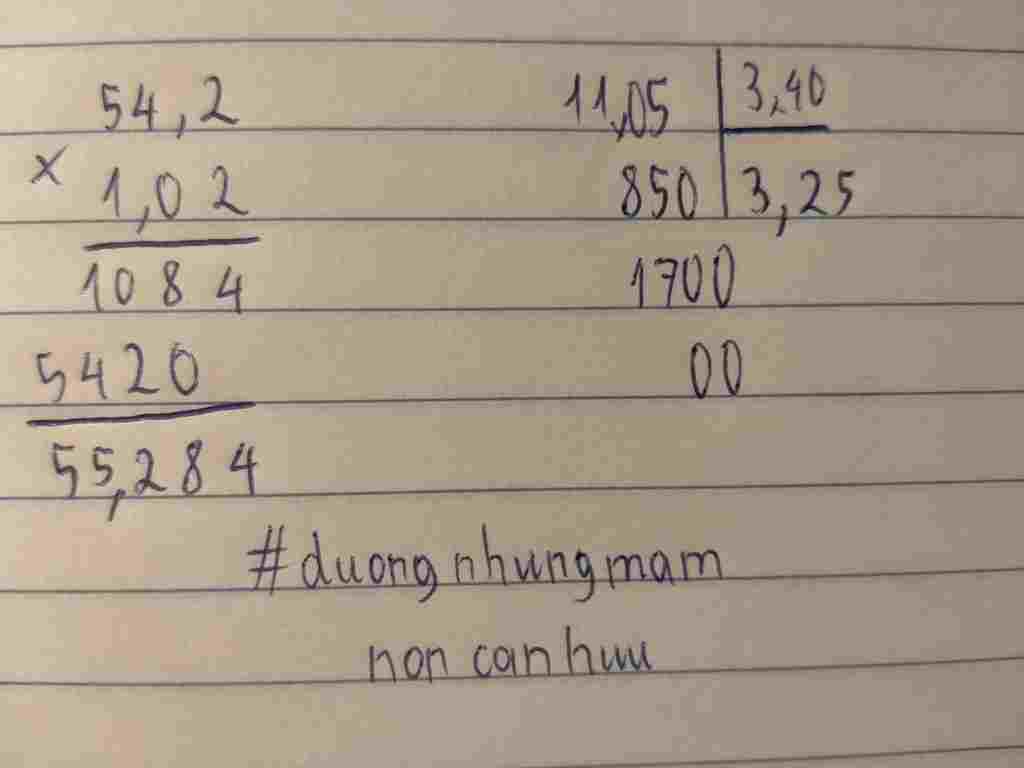 54,2
x 1,02
1084
5420
55,284
11,05 3,40
850 3,25
1700
00
#duongnhungmam
non canhuu